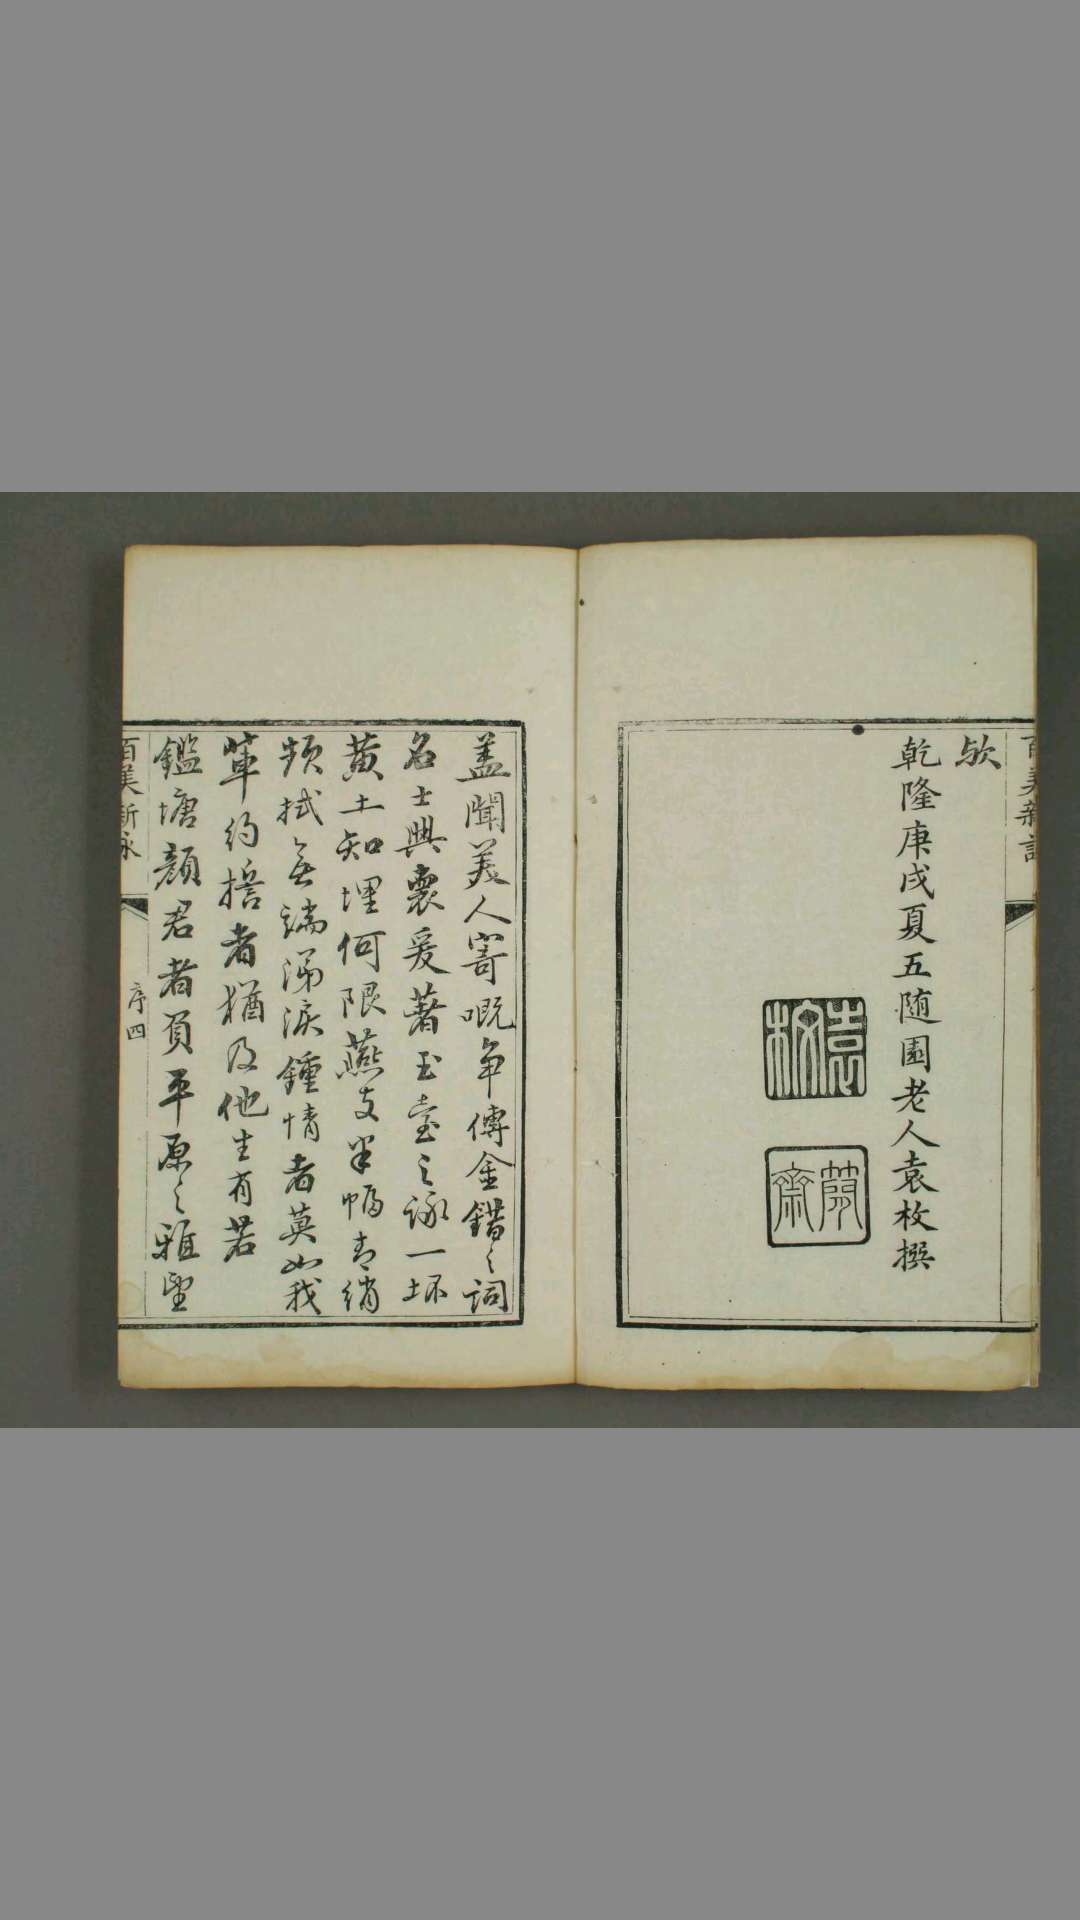 百美新詠
欤
乾隆庚戌夏五随園老人袁枚撰
袁枚
簡齋
盖聞美人寄嘅争傳金錯之詞
名士興懷爰著玉臺之詠一抔
黄土知埋何限燕支半幅青綃
頻拭無端涕淚鍾情者莫如我
輩約指者猶及他生有若
鑑塘顔君者負平原之雅望
百美新詠
序四